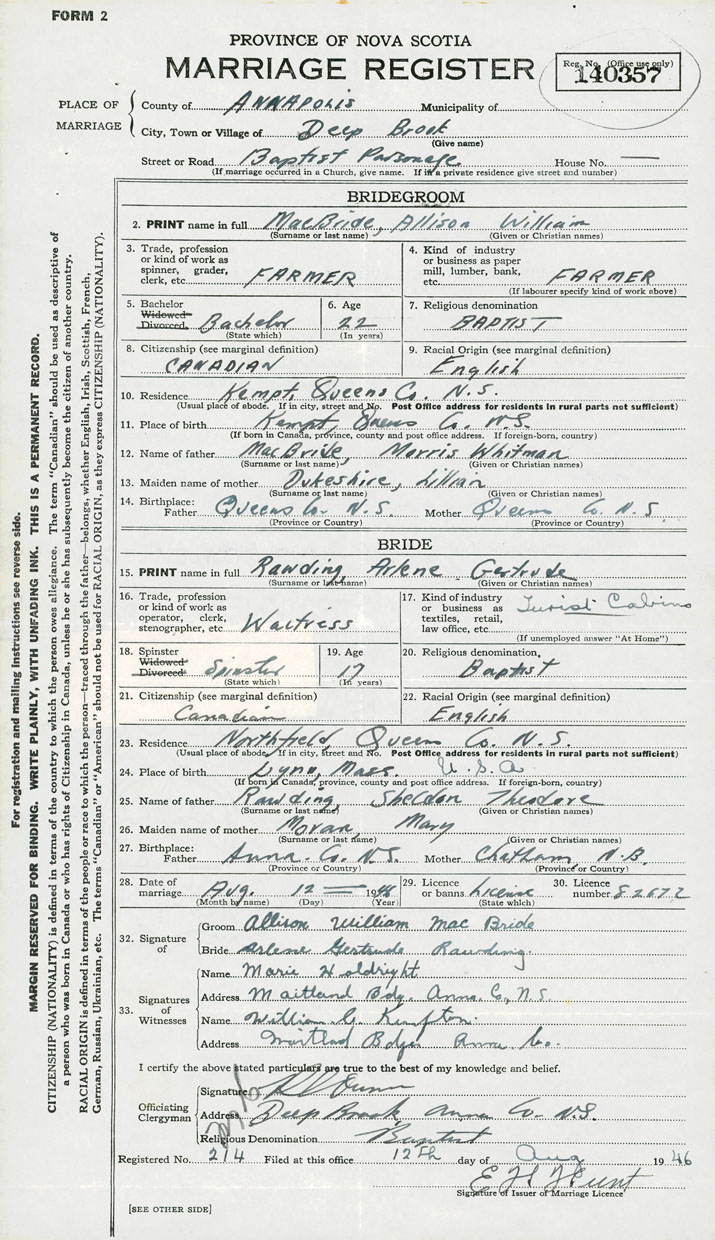 FORM 2
PROVINCE OF NOVA SCOTIA
MARRIAGE REGISTER
Reg. No. (Office use only)
140357
PLACE OF MARRIAGE
County of ANNAPOLIS Municipality of
City, Town or Village of Deep Brook
(Give name)
Street or Road Baptist Parsonage House No. —
(If marriage occurred in a Church, give name. If in a private residence give street and number)
BRIDEGROOM
2. PRINT name in full MacBride, Allison William
(Surname or last name) (Given or Christian names)
3. Trade, profession or kind of work as spinner, grader, clerk, etc. FARMER
4. Kind of industry or business as paper mill, lumber, bank, etc. FARMER
(If labourer specify kind of work above)
5. Bachelor Widowed Divorced Bachelor
(State which)
6. Age 22
(In years)
7. Religious denomination BAPTIST
8. Citizenship (see marginal definition) CANADIAN
9. Racial Origin (see marginal definition) English
10. Residence Kempt, Queens Co. N.S.
(Usual place of abode. If in city, street and No. Post Office address for residents in rural parts not sufficient)
11. Place of birth Kempt, Queens Co. N.S.
(If born in Canada, province, county and post office address. If foreign-born, country)
12. Name of father MacBride, Morris Whitman
(Surname or last name) (Given or Christian names)
13. Maiden name of mother Dukeshire, Lillian
(Surname or last name) (Given or Christian names)
14. Birthplace: Father Queens Co. N.S. Mother Queens Co. N.S.
(Province or Country) (Province or Country)
BRIDE
15. PRINT name in full Rawding, Arlene Gertrude
(Surname or last name) (Given or Christian names)
16. Trade, profession or kind of work as operator, clerk, stenographer, etc. Waitress
17. Kind of industry or business as textiles, retail, law office, etc. Turist Cabins
(If unemployed answer "At Home")
18. Spinster Widowed Divorced Spinster
(State which)
19. Age 17
(In years)
20. Religious denomination Baptist
21. Citizenship (see marginal definition) Canadian
22. Racial Origin (see marginal definition) English
23. Residence Northfield, Queens Co. N.S.
(Usual place of abode. If in city, street and No. Post Office address for residents in rural parts not sufficient)
24. Place of birth Lynn, Mass. U.S.A
(If born in Canada, province, county and post office address. If foreign-born, country)
25. Name of father Rawding, Sheldon Theodore
(Surname or last name) (Given or Christian names)
26. Maiden name of mother Moran, Mary
(Surname or last name) (Given or Christian names)
27. Birthplace: Father Anna. Co. N.S. Mother Chatham, N.B.
(Province or Country) (Province or Country)
28. Date of marriage Aug. 12 — 1946
(Month by name) (Day) (Year)
29. Licence or banns License
(State which)
30. Licence number 82672
32. Signature of
Groom Allison William Mac Bride
Bride Arlene Gertrude Rawding.
33. Signatures of Witnesses
Name Marie Holdright
Address Maitland Bdg. Anna. Co., N.S.
Name William G. Kempton.
Address Maitland Bdge Anna. Co.
I certify the above stated particulars are true to the best of my knowledge and belief.
Officiating Clergyman
Signature
Address Deep Brook, Anna Co. N.S.
Religious Denomination Baptist
Registered No. 214 Filed at this office 12th day of Aug 1946
Signature of Issuer of Marriage Licence
[SEE OTHER SIDE]
For registration and mailing instructions see reverse side.
MARGIN RESERVED FOR BINDING. WRITE PLAINLY, WITH UNFADING INK. THIS IS A PERMANENT RECORD.
CITIZENSHIP (NATIONALITY) is defined in terms of the country to which the person owes allegiance. The term "Canadian" should be used as descriptive of
a person who was born in Canada or who has rights of Citizenship in Canada, unless he or she has subsequently become the citizen of another country.
RACIAL ORIGIN is defined in terms of the people or race to which the person—traced through the father—belongs, whether English, Irish, Scottish, French,
German, Russian, Ukrainian, etc. The terms "Canadian" or "American" should not be used for RACIAL ORIGIN, as they express CITIZENSHIP (NATIONALITY).